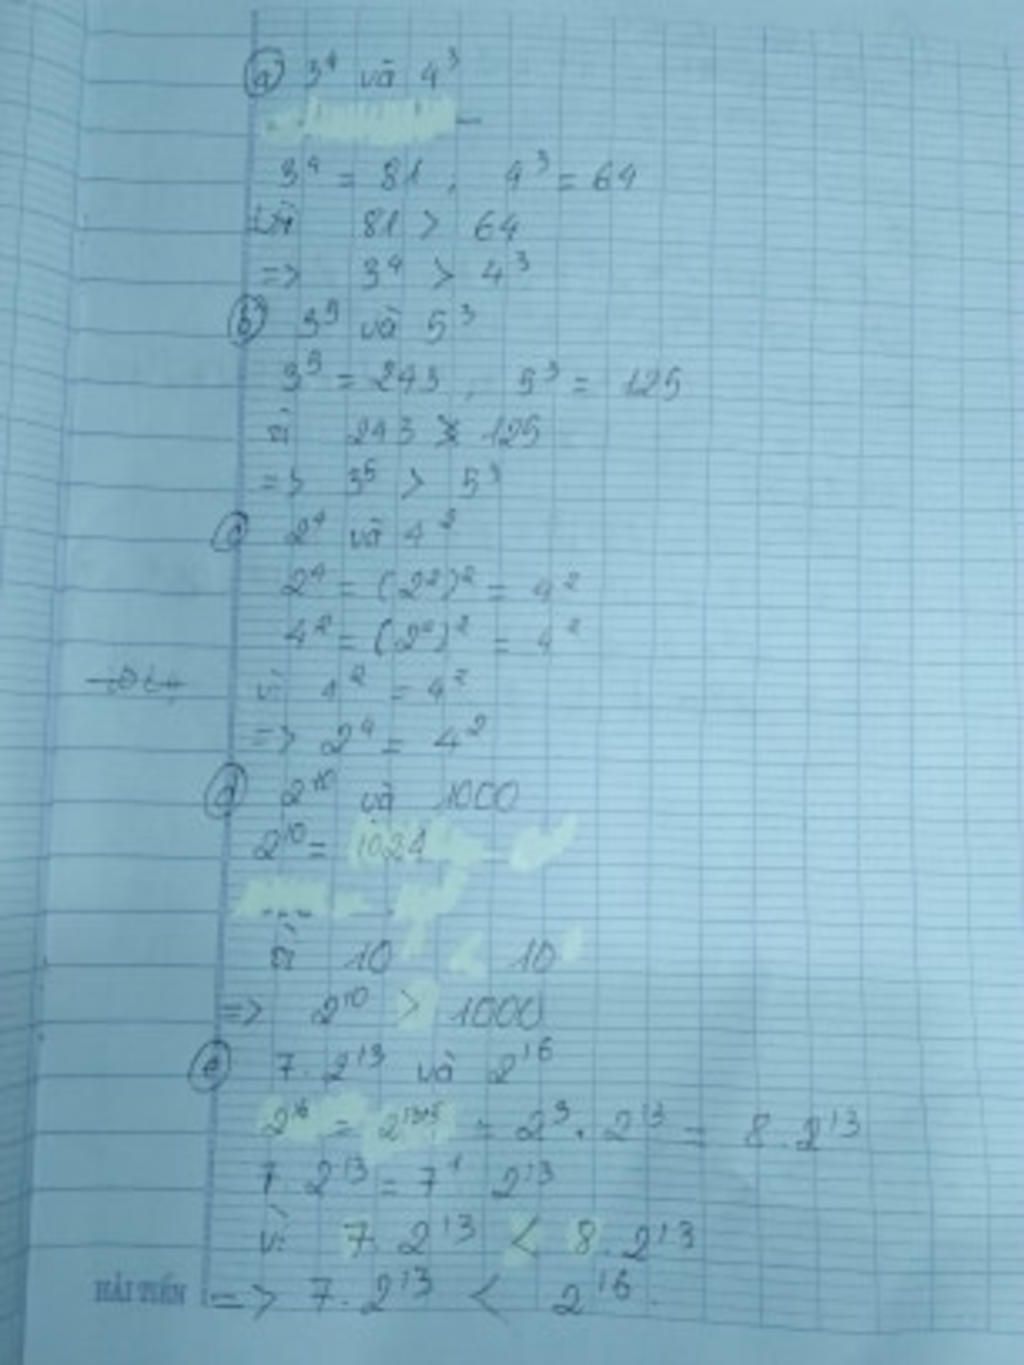 a) 3⁴ và 4³
3⁴ = 81, 4³ = 64
Vì 81 > 64
=> 3⁴ > 4³
b) 3⁵ và 5³
3⁵ = 243, 5³ = 125
vì 243 > 125
=> 3⁵ > 5³
c) 2⁴ và 4²
2⁴ = (2²)² = 4²
4² = (2²)² = 4²
vì 4² = 4²
=> 2⁴ = 4²
d) 2¹⁰ và 1000
2¹⁰ = 1024
vì 10 < 10
=> 2¹⁰ > 1000
e) 7.2¹³ và 2¹⁶
2¹⁶ = = 2³.2¹³ = 8.2¹³
7.2¹³ = 7¹ 2¹³
vì 7.2¹³ < 8.2¹³
HẢI TIẾN => 7.2¹³ < 2¹⁶.